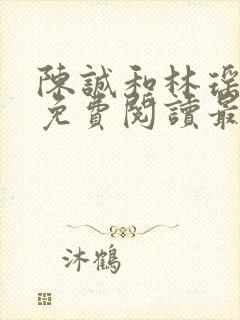 陳誠和林瑤
免費閱讀最
沐鶴